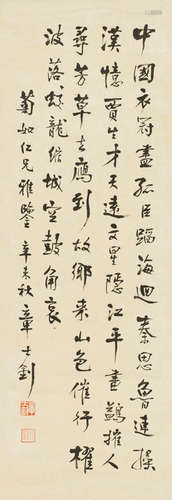 中國衣冠盡孤臣蹈海迴秦思魯連操
漢憶賈生才天遠文星隱江平畫鷁摧人
尋芳草去鴈到故鄉来山色催行櫂
波落蛟龍城空鼓角哀
菊如仁兄雅鑒 辛未秋 章士釗